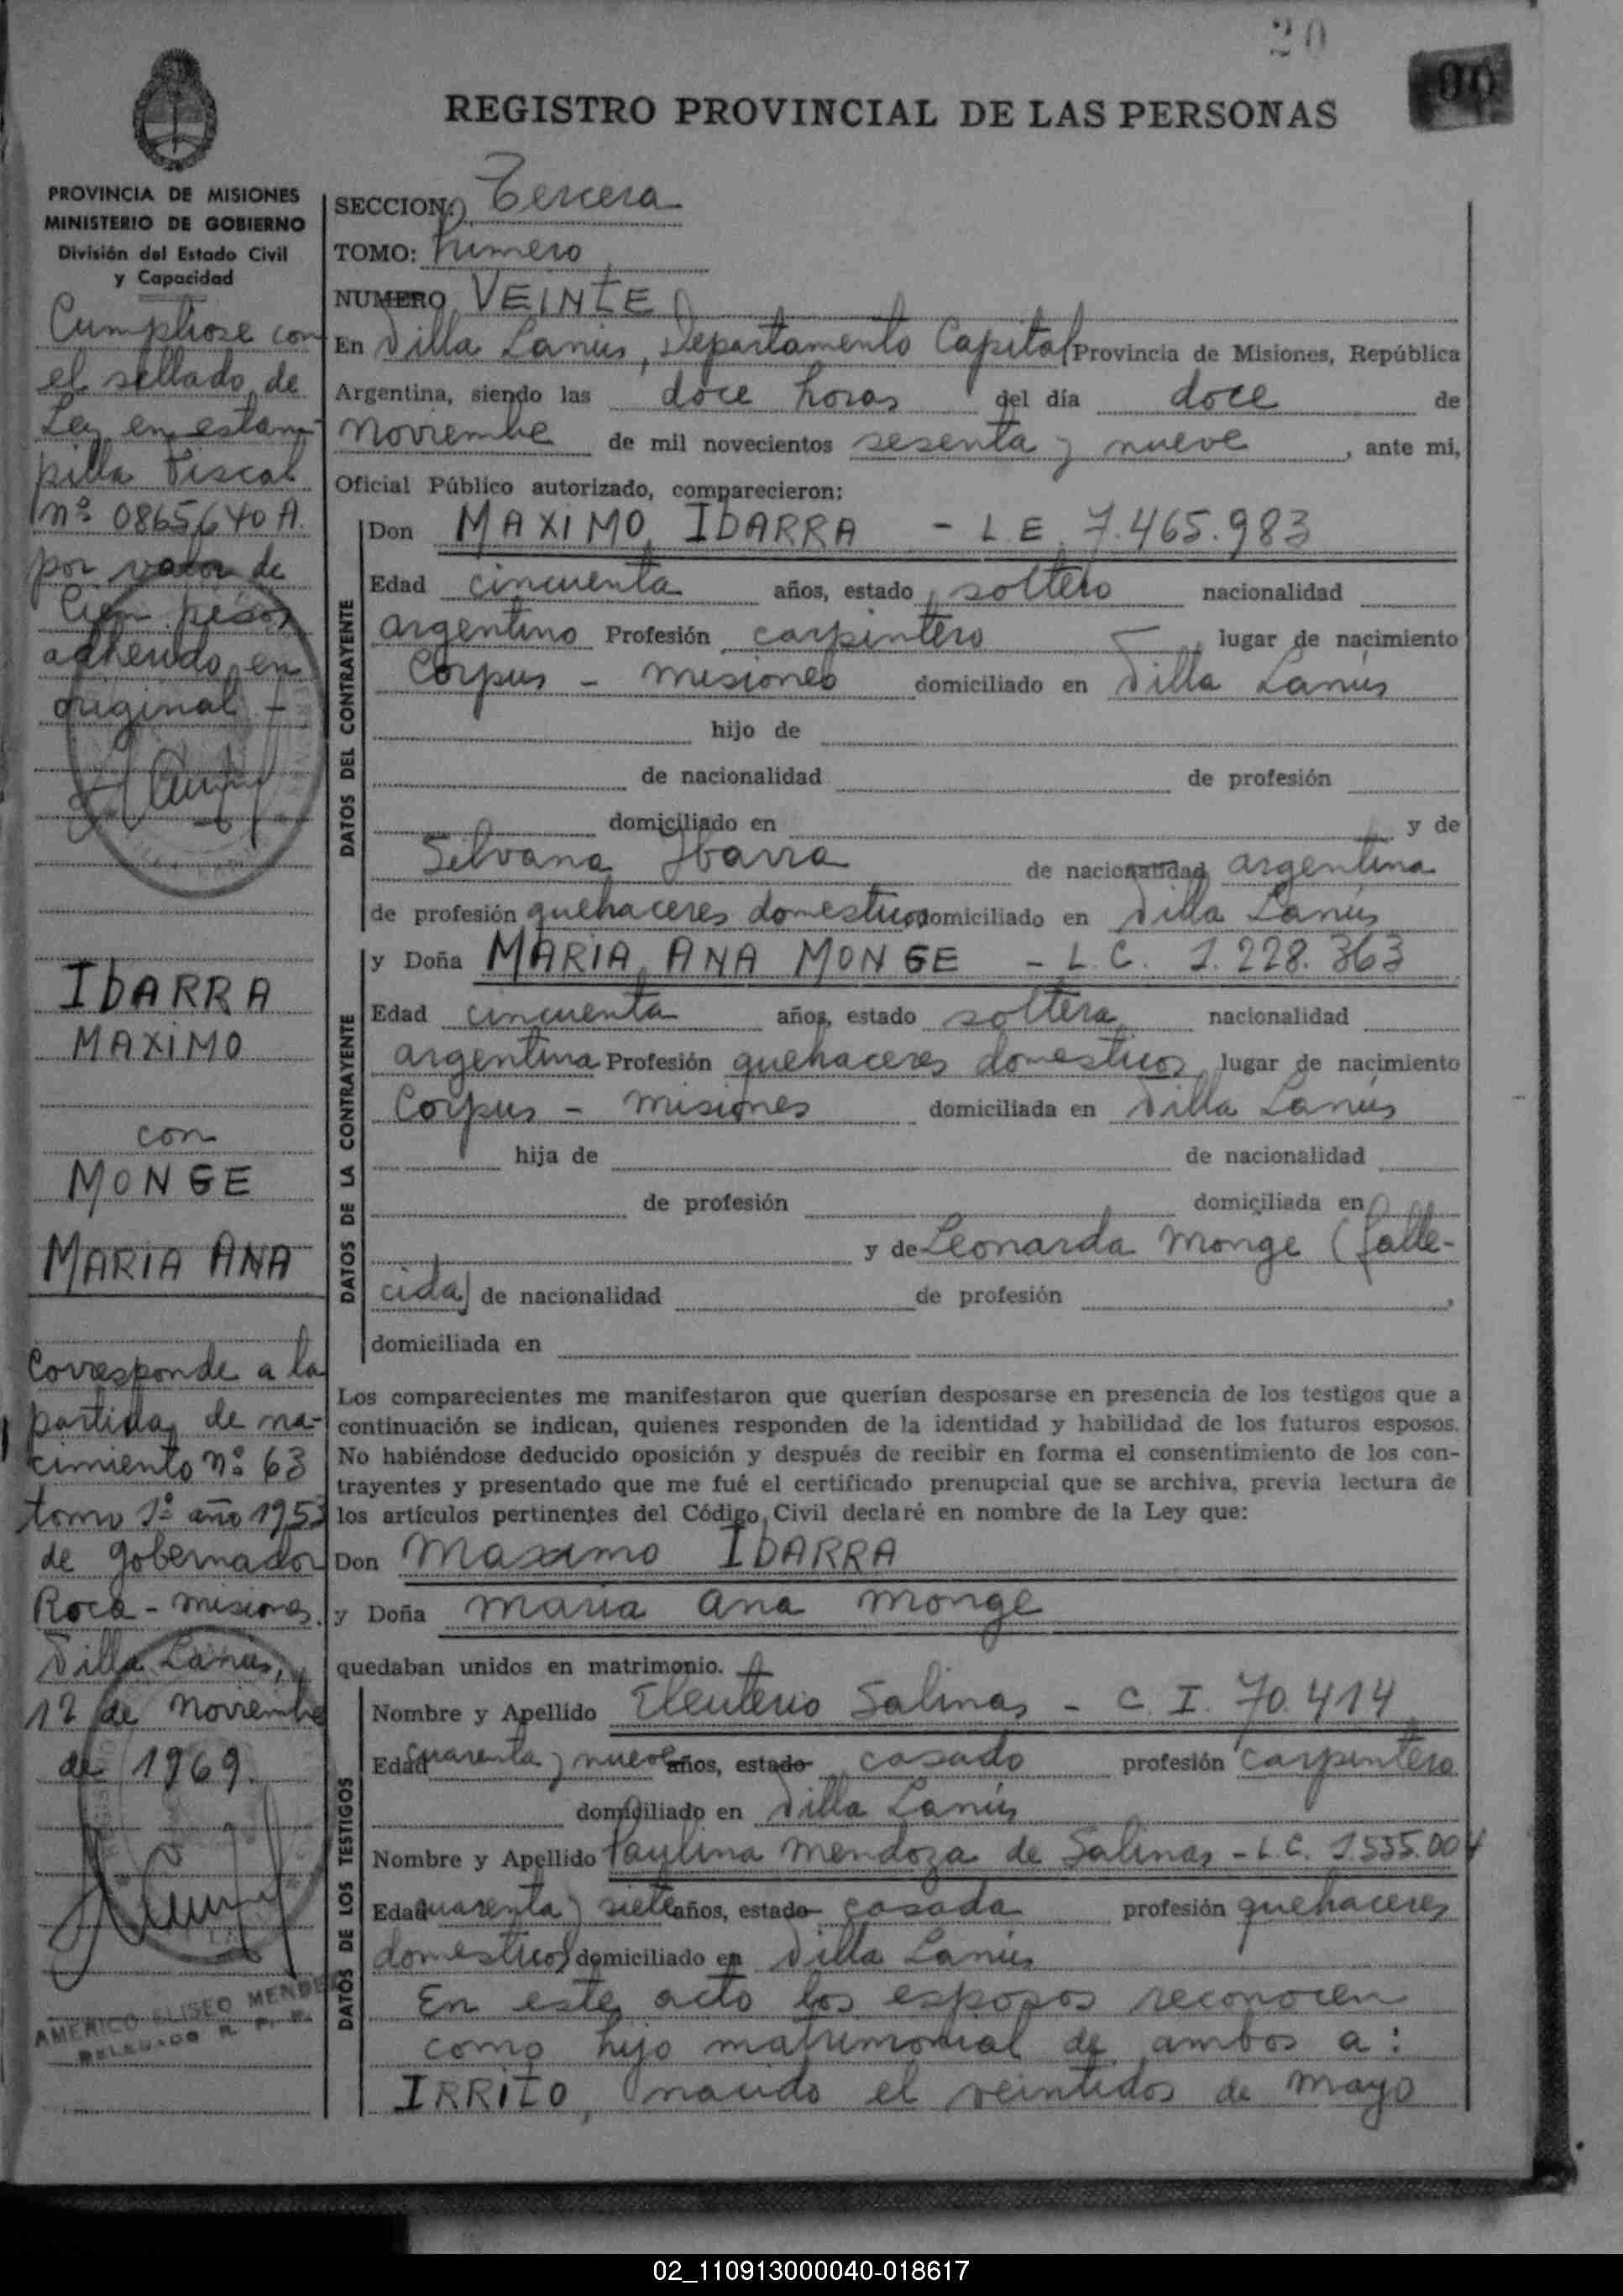 20
90
REGISTRO PROVINCIAL DE LAS PERSONAS
PROVINCIA DE MISIONES
MINISTERIO DE GOBIERNO
División del Estado Civil
y Capacidad
Cumpliose con
el sellado de
Ley en estam-
pilla Fiscal
nº 0865640 A.
por valor de
Cien pesos
adherido en
original -
IBARRA
MAXIMO
con
MONGE
MARIA ANA
Corresponde a la
partida de na-
cimiento nº 63
tomo 1º año 1953
de gobernador
Roca - misiones.
Villa Lanús,
12 de noviembre
de 1969.
AMERICO ELISEO MENDEZ
DELEGADO R. P. P.
SECCION: Tercera
TOMO: Primero
NUMERO VEINTE
En Villa Lanús, Departamento Capital Provincia de Misiones, República
Argentina, siendo las doce horas del día doce de
noviembre de mil novecientos sesenta y nueve, ante mi,
Oficial Público autorizado, comparecieron:
DATOS DEL CONTRAYENTE
Don MAXIMO IBARRA - L.E. 7.465.983
Edad cincuenta años, estado soltero nacionalidad
argentino Profesión carpintero lugar de nacimiento
Corpus - misiones domiciliado en Villa Lanús
hijo de
de nacionalidad de profesión
domiciliado en y de
Silvana Ibarra de nacionalidad argentina
de profesión quehaceres domesticos domiciliado en Villa Lanús
DATOS DE LA CONTRAYENTE
y Doña MARIA ANA MONGE - L.C. 1.228.363
Edad cincuenta años, estado soltera nacionalidad
argentina Profesión quehaceres domesticos lugar de nacimiento
Corpus - misiones domiciliada en Villa Lanús
hija de de nacionalidad
de profesión domiciliada en
y de Leonarda Monge (falle-
cida) de nacionalidad de profesión ,
domiciliada en
Los comparecientes me manifestaron que querían desposarse en presencia de los testigos que a
continuación se indican, quienes responden de la identidad y habilidad de los futuros esposos.
No habiéndose deducido oposición y después de recibir en forma el consentimiento de los con-
trayentes y presentado que me fué el certificado prenupcial que se archiva, previa lectura de
los artículos pertinentes del Código Civil declaré en nombre de la Ley que:
Don Maximo IBARRA
y Doña maria ana monge
quedaban unidos en matrimonio.
DATOS DE LOS TESTIGOS
Nombre y Apellido Eleuterio Salinas - C.I. 70.414
Edad cuarenta y nueve años, estado casado profesión carpintero
domiciliado en Villa Lanús
Nombre y Apellido Paulina Mendoza de Salinas - L.C. 1.535.004
Edad cuarenta y siete años, estado casada profesión quehaceres
domesticos domiciliado en Villa Lanús
En este acto los esposos reconocen
como hijo matrimonial de ambos a:
IRRITO, nacido el veintidos de mayo
02_110913000040-018617